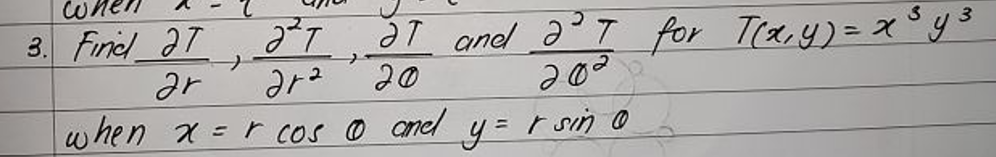 when
3. Find ∂T/∂r, ∂²T/∂r², ∂T/∂θ and ∂²T/∂θ² for T(x,y) = x³y³
when x = r cos θ and y = r sin θ